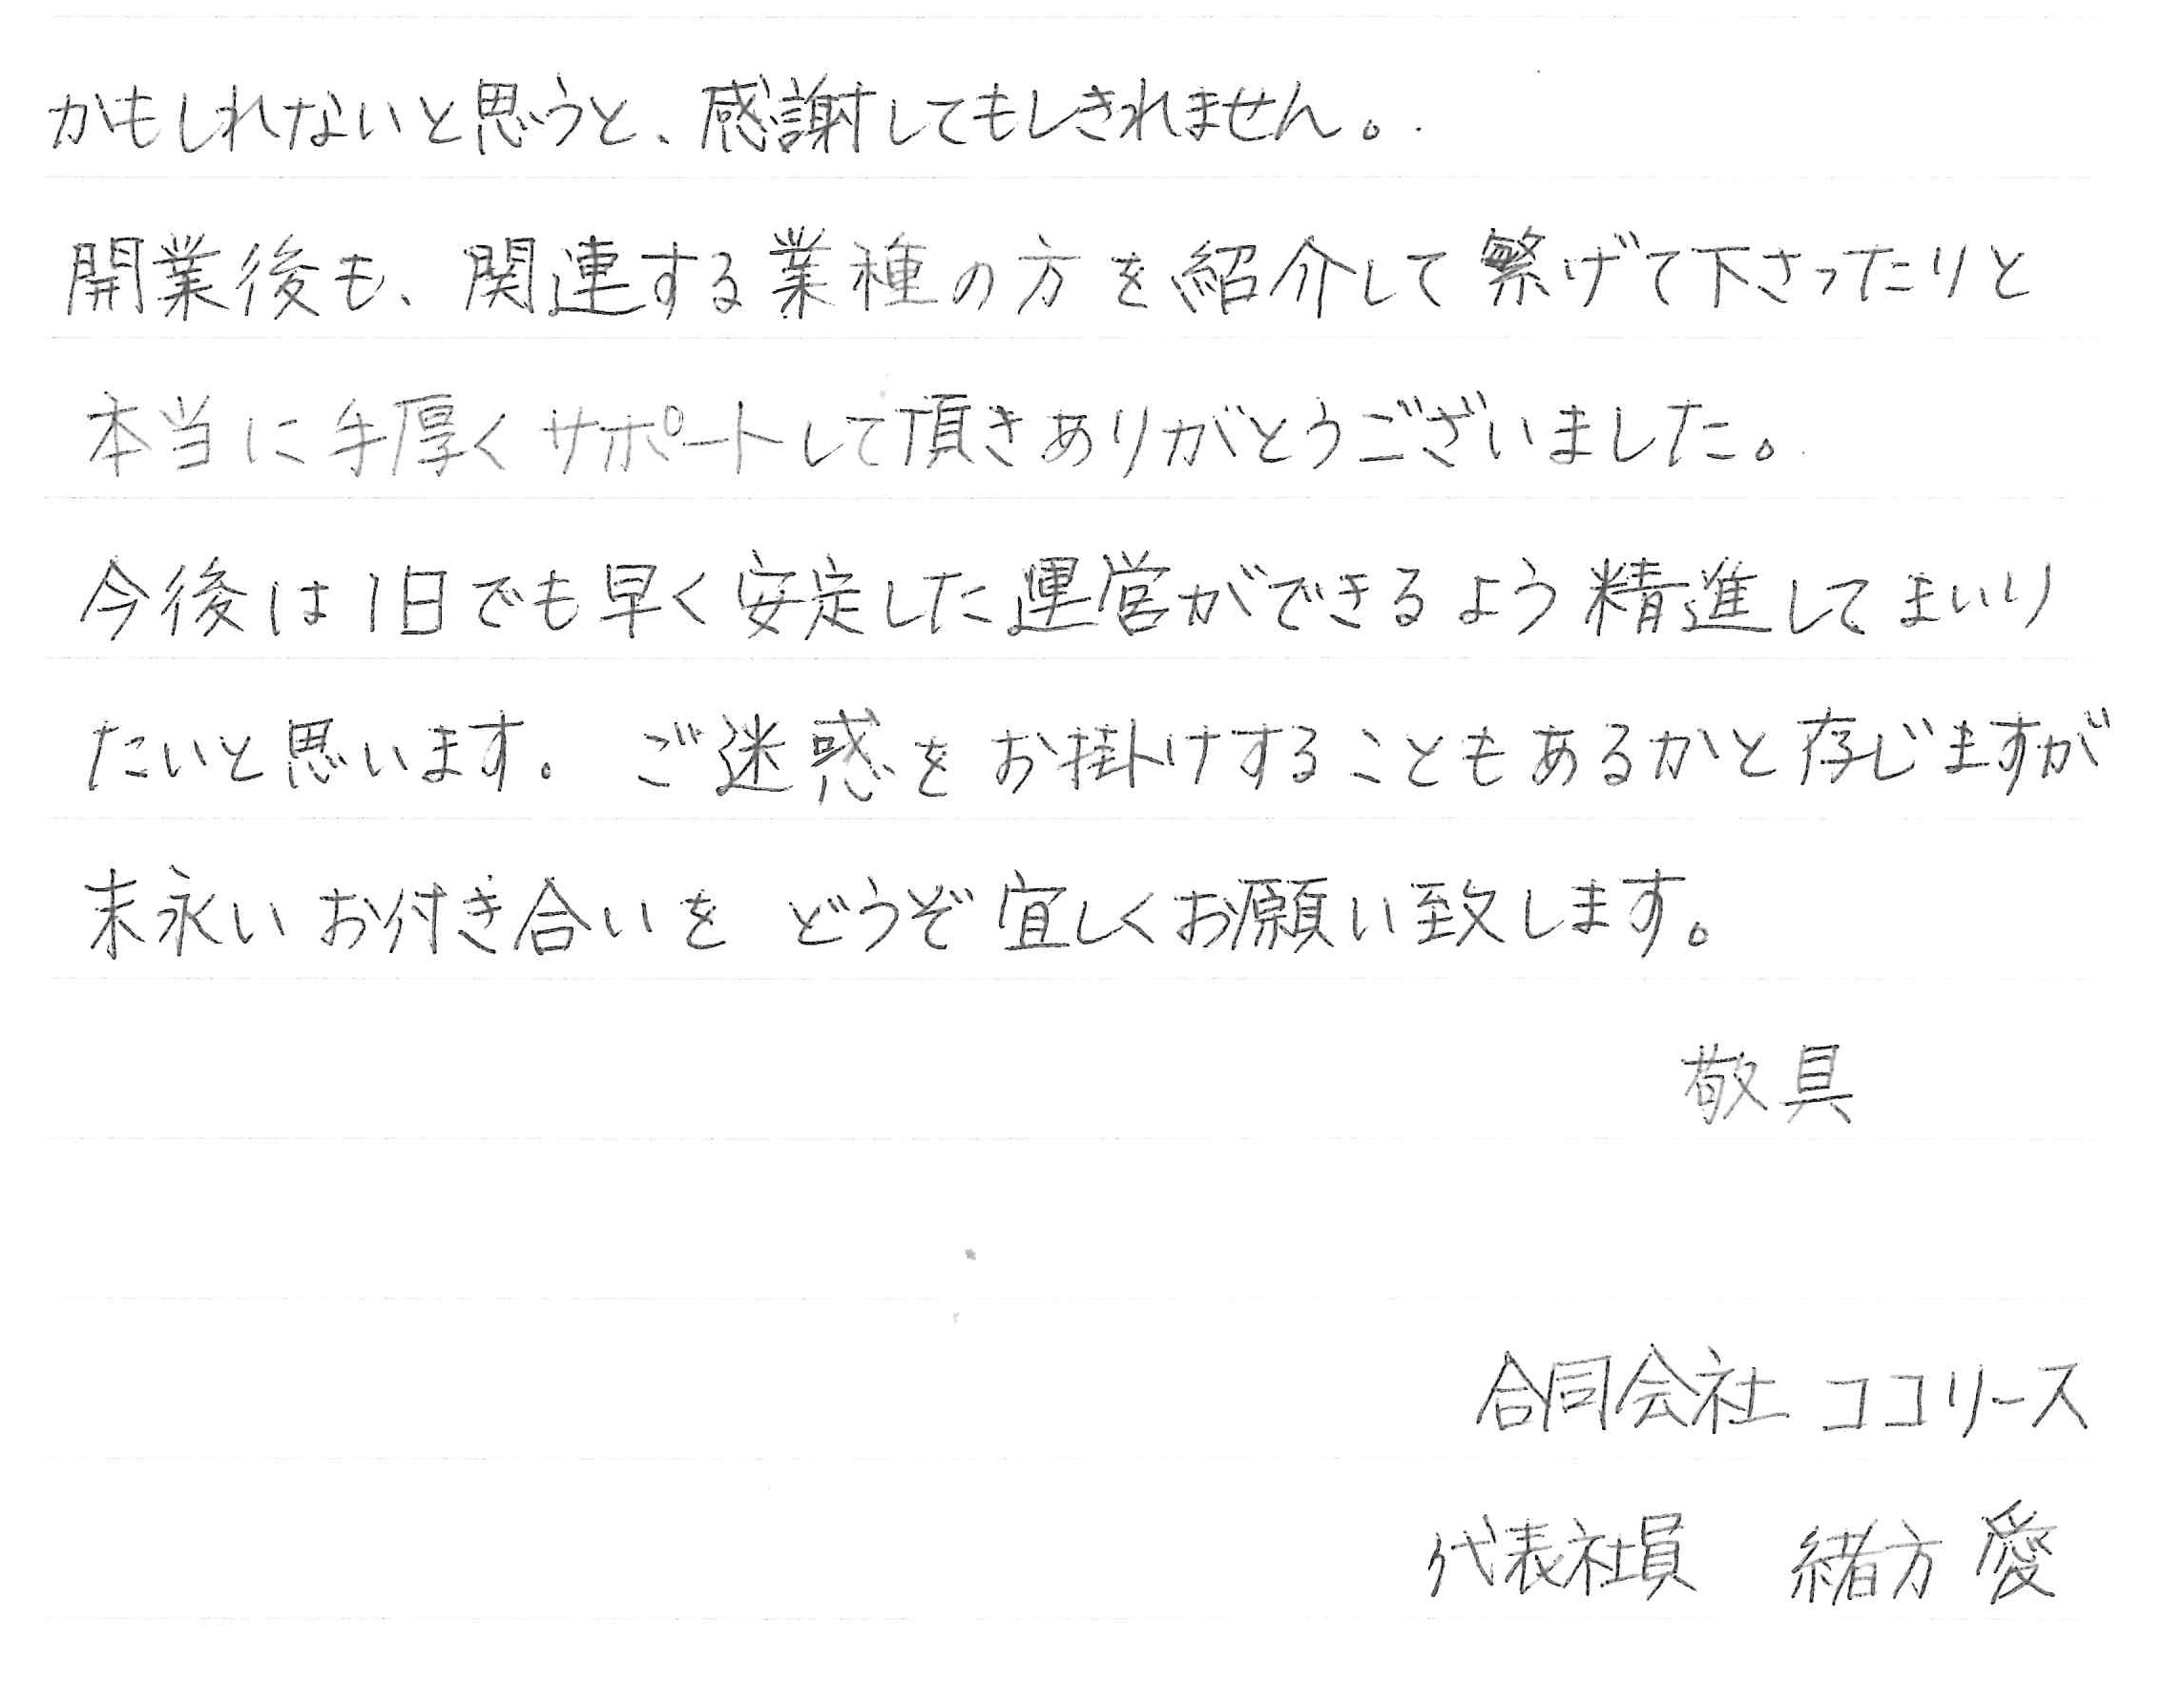 かもしれないと思うと、感謝してもしきれません。
開業後も、関連する業種の方を紹介して繋げて下さったりと
本当に手厚くサポートして頂きありがとうございました。
今後は1日でも早く安定した運営ができるよう精進してまいり
たいと思います。ご迷惑をお掛けすることもあるかと存じますが
末永いお付き合いを どうぞ宜しくお願い致します。
敬具
合同会社 ココリース
代表社員 緒方 愛